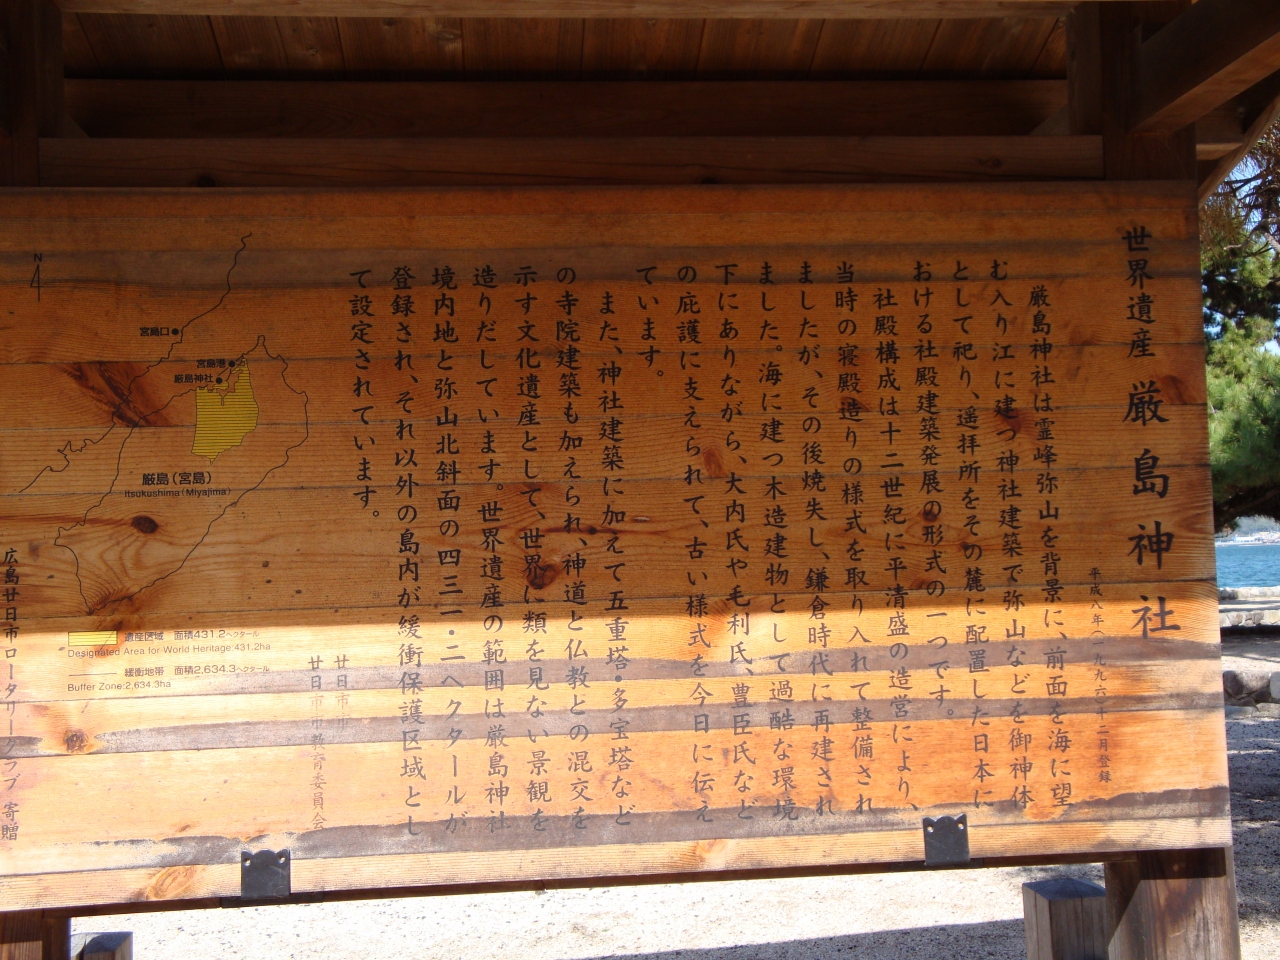 世界遺産 厳島神社
平成八年(一九九六)十二月登録
厳島神社は霊峰弥山を背景に、前面を海に望
む入り江に建つ神社建築で弥山などを御神体
として祀り、遥拝所をその麓に配置した日本に
おける社殿建築発展の形式の一つです。
社殿構成は十二世紀に平清盛の造営により、
当時の寝殿造りの様式を取り入れて整備され
ましたが、その後焼失し、鎌倉時代に再建され
ました。海に建つ木造建物として過酷な環境
下にありながら、大内氏や毛利氏、豊臣氏など
の庇護に支えられて、古い様式を今日に伝え
ています。
また、神社建築に加えて五重塔・多宝塔など
の寺院建築も加えられ、神道と仏教との混交を
示す文化遺産として、世界に類を見ない景観を
造りだしています。世界遺産の範囲は厳島神社
境内地と弥山北斜面の四三一・二ヘクタールが
登録され、それ以外の島内が緩衝保護区域とし
て設定されています。
廿日市市
廿日市市教育委員会
N
宮島口
宮島港
厳島神社
厳島(宮島)
Itsukushima (Miyajima)
遺産区域 面積431.2ヘクタール
Designated Area for World Heritage 431.2ha
緩衝地帯 面積2,634.3ヘクタール
Buffer Zone:2,634.3ha
広島廿日市ロータリークラブ 寄贈